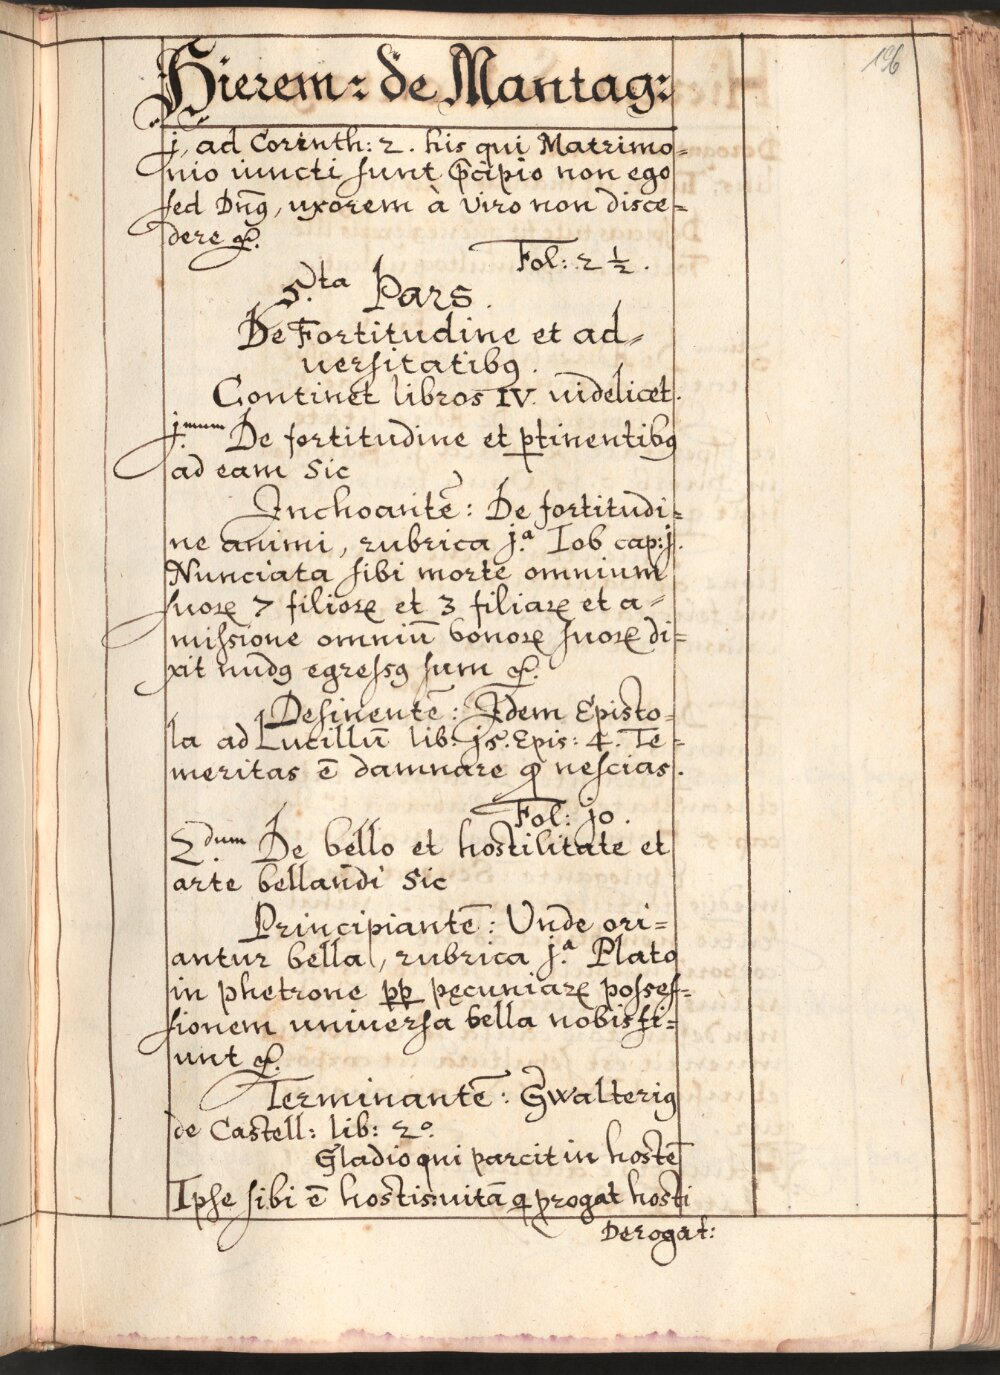 196
Hierem: de Mantag:
j, ad Corinth: 2. his qui Matrimo=
nio iuncti sunt p̄cipio non ego
sed Dn̄9, uxorem à viro non disce=
dere ꝛc.
Fol: 2 ½.
5.ta Pars.
De Fortitudine et ad=
uersitatibꝰ.
Continet libros IV. uidelicet.
j.mum De fortitudine et ꝑtinentibꝰ
ad eam sic
Inchoantē: De fortitudi=
ne animi, rubrica j.a Iob cap: j.
Nunciata sibi morte omnium
suoꝝ 7 filioꝝ et 3 filiaꝝ et a=
missione omniū bonoꝝ suoꝝ di=
xit nudꝰ egressꝰ sum ꝛc.
Desinentē: Idem Episto=
la ad Lucillū lib: j5. Epis: 4. Te=
meritas ē damnare ꝙ nescias.
Fol: jo.
2.dum De bello et hostilitate et
arte bellandi sic
Principiantē: Unde ori=
antur bella, rubrica j.a Plato
in phetrone ꝑꝑ pęcuniaꝝ posses=
sionem uniuersa bella nobis fi=
unt ꝛc.
Terminantē: Gwalteriꝰ
de Castell: lib: 2o.
Gladio qui parcit in hostē
Ipse sibi ē hostis: uitā ꝗ ꝓrogat hosti
Derogat: